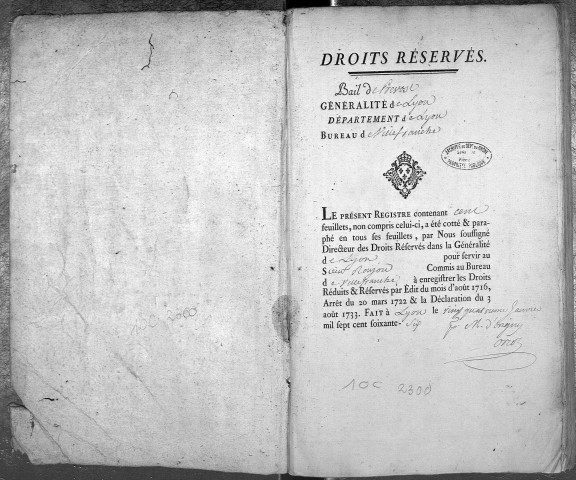 10C 2300
DROITS RÉSERVÉS.
Bail de Prevost
GÉNÉRALITÉ de Lyon
DÉPARTEMENT de Lyon
BUREAU de Villefranche
LE PRÉSENT REGISTRE contenant cent
feuillets, non compris celui-ci, a été cotté & para-
phé en tous ses feuillets, par Nous soussigné
Directeur des Droits Réservés dans la Généralité
de Lyon pour servir au
Sieur Commis au Bureau
de Villefranche à enregistrer les Droits
Réduits & Réservés par Édit du mois d'août 1716,
Arrêt du 20 mars 1722 & la Déclaration du 3
août 1733. FAIT à Lyon le vingt quatrieme janvier
mil sept cent soixante-six
10C 2300